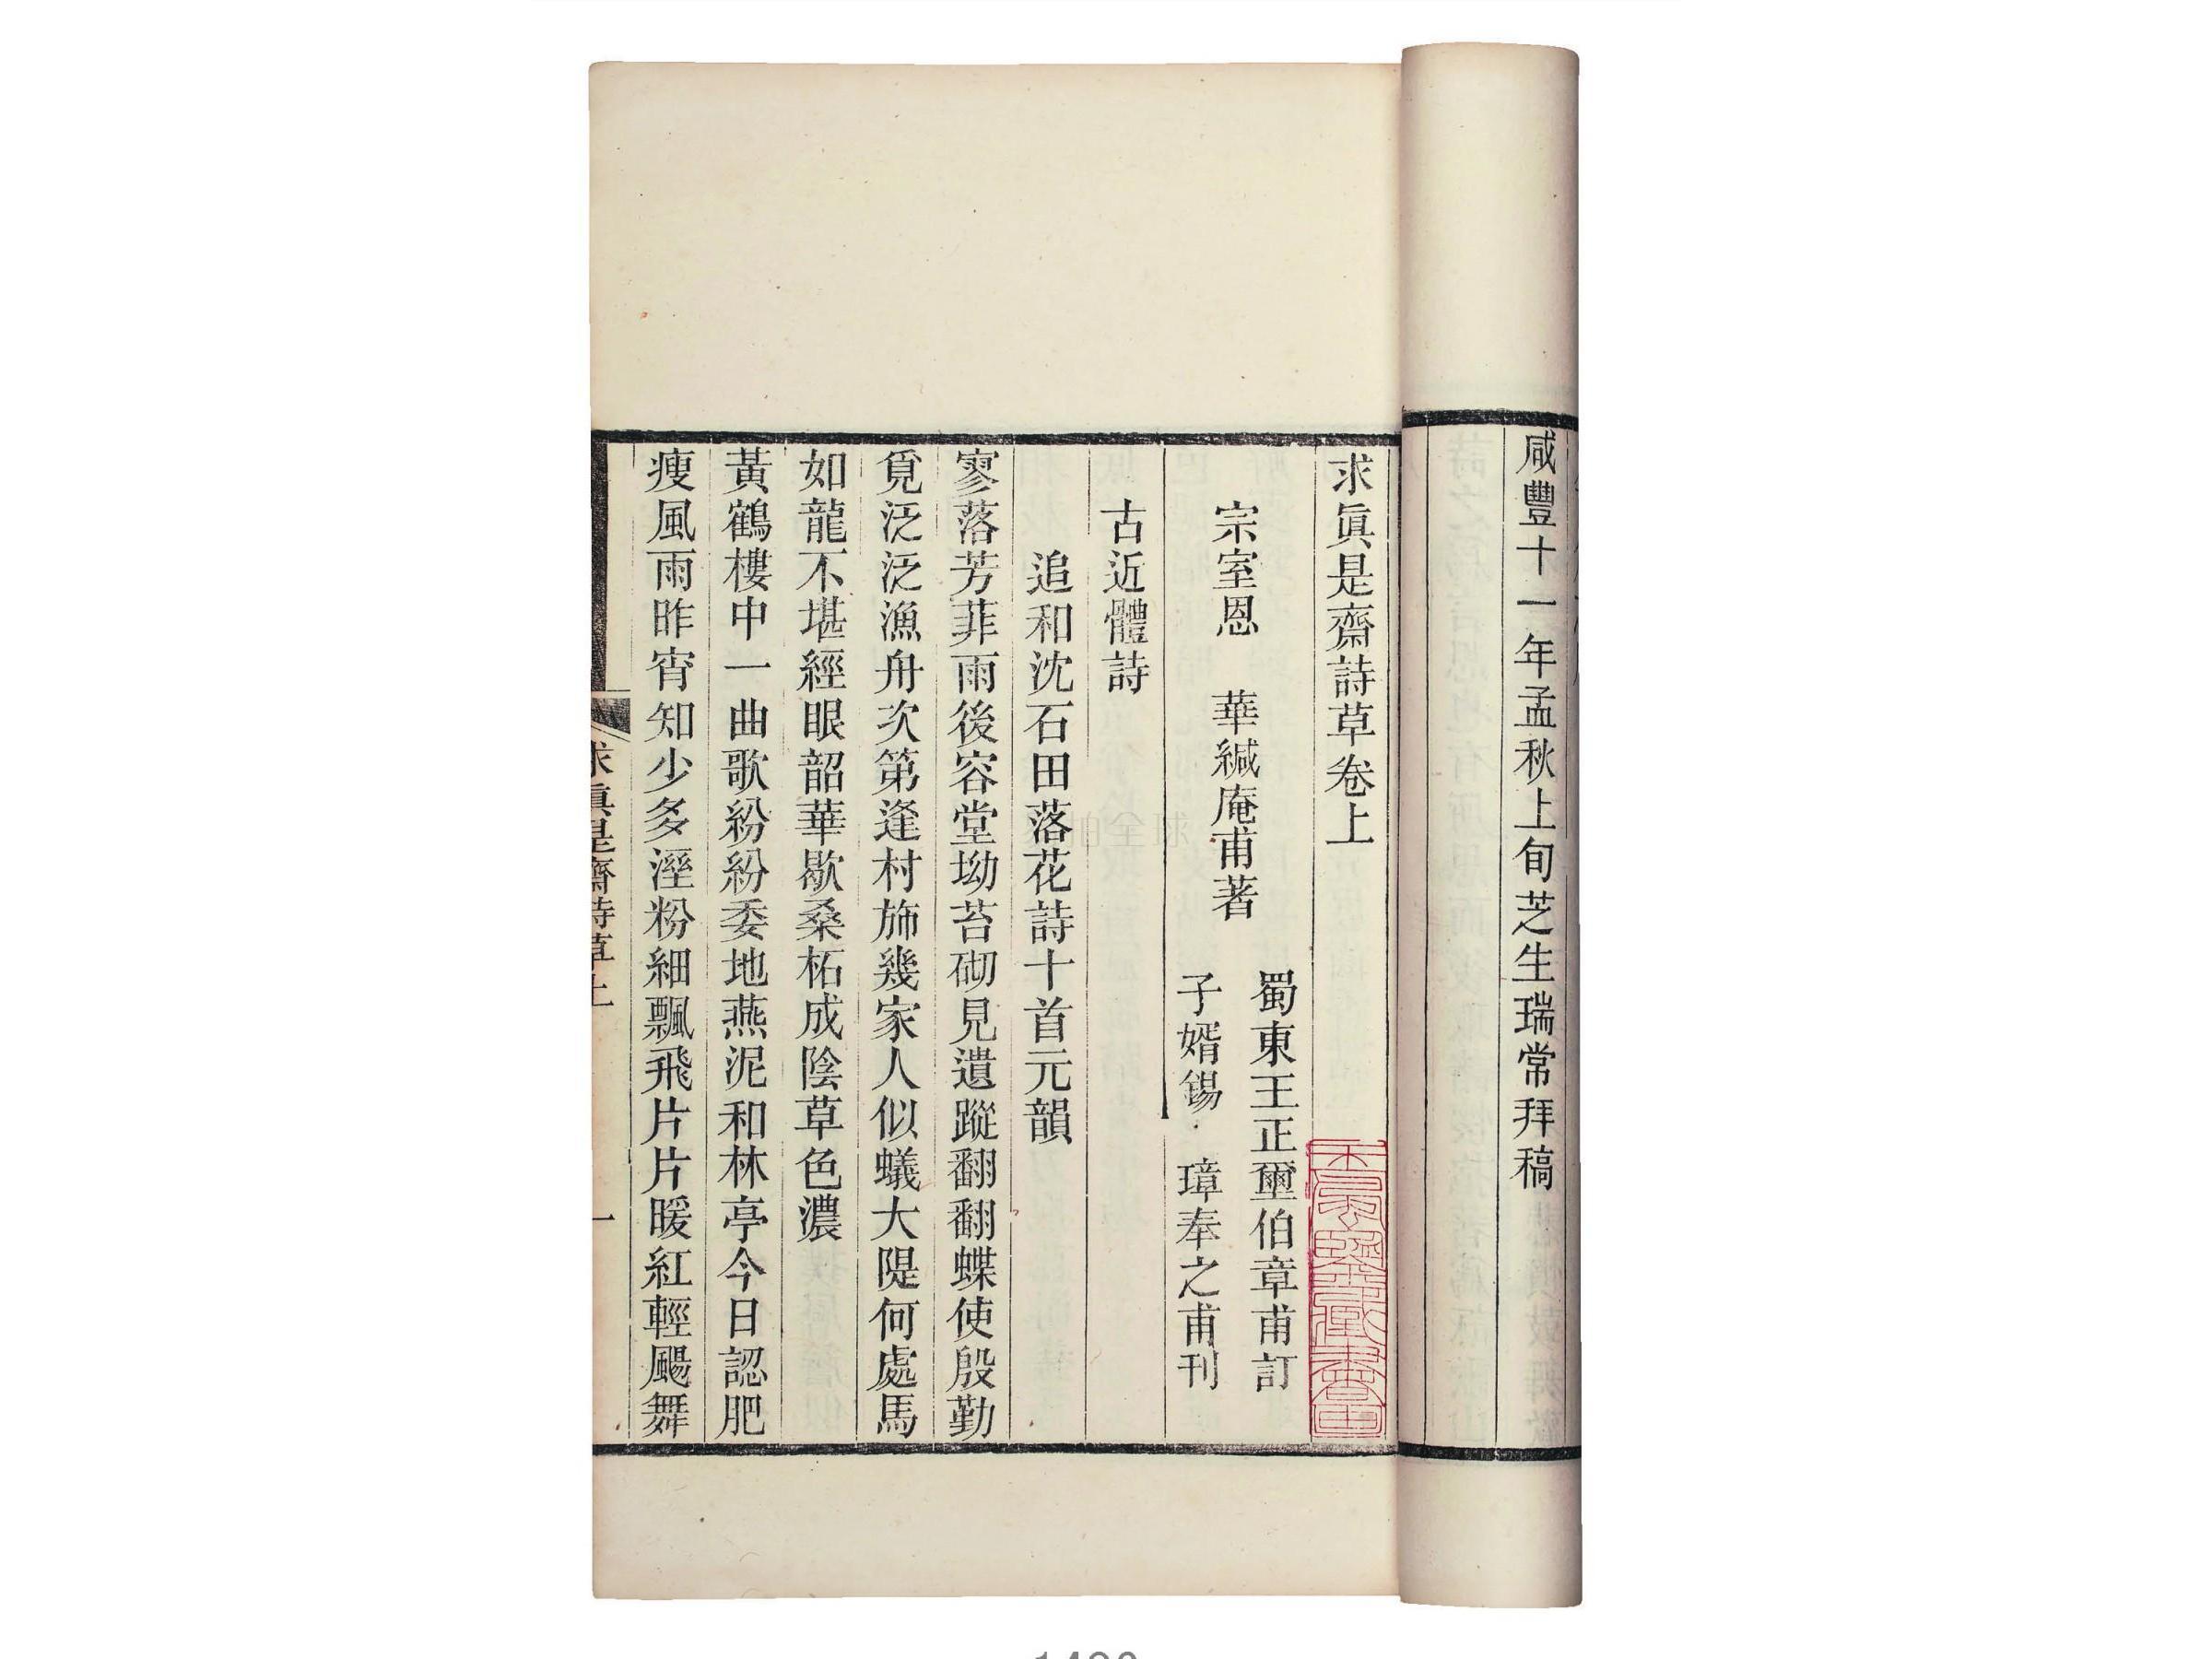 咸豐十一年孟秋上旬芝生瑞常拜稿
求眞是齋詩草卷上
蜀東王正璽伯章甫訂
宗室恩 華緘庵甫著
子婿錫 璋奉之甫刊
古近體詩
追和沈石田落花詩十首元韻
寥落芳菲雨後容堂坳苔砌見遺蹤翻翻蝶使殷勤
覓泛泛漁舟次第逢村斾幾家人似蟻大隄何處馬
如龍不堪經眼韶華歇桑柘成陰草色濃
黃鶴樓中一曲歌紛紛委地燕泥和林亭今日認肥
瘦風雨昨宵知少多溼粉細飄飛片片暖紅輕颺舞
求眞是齋詩草上
一
拍全球